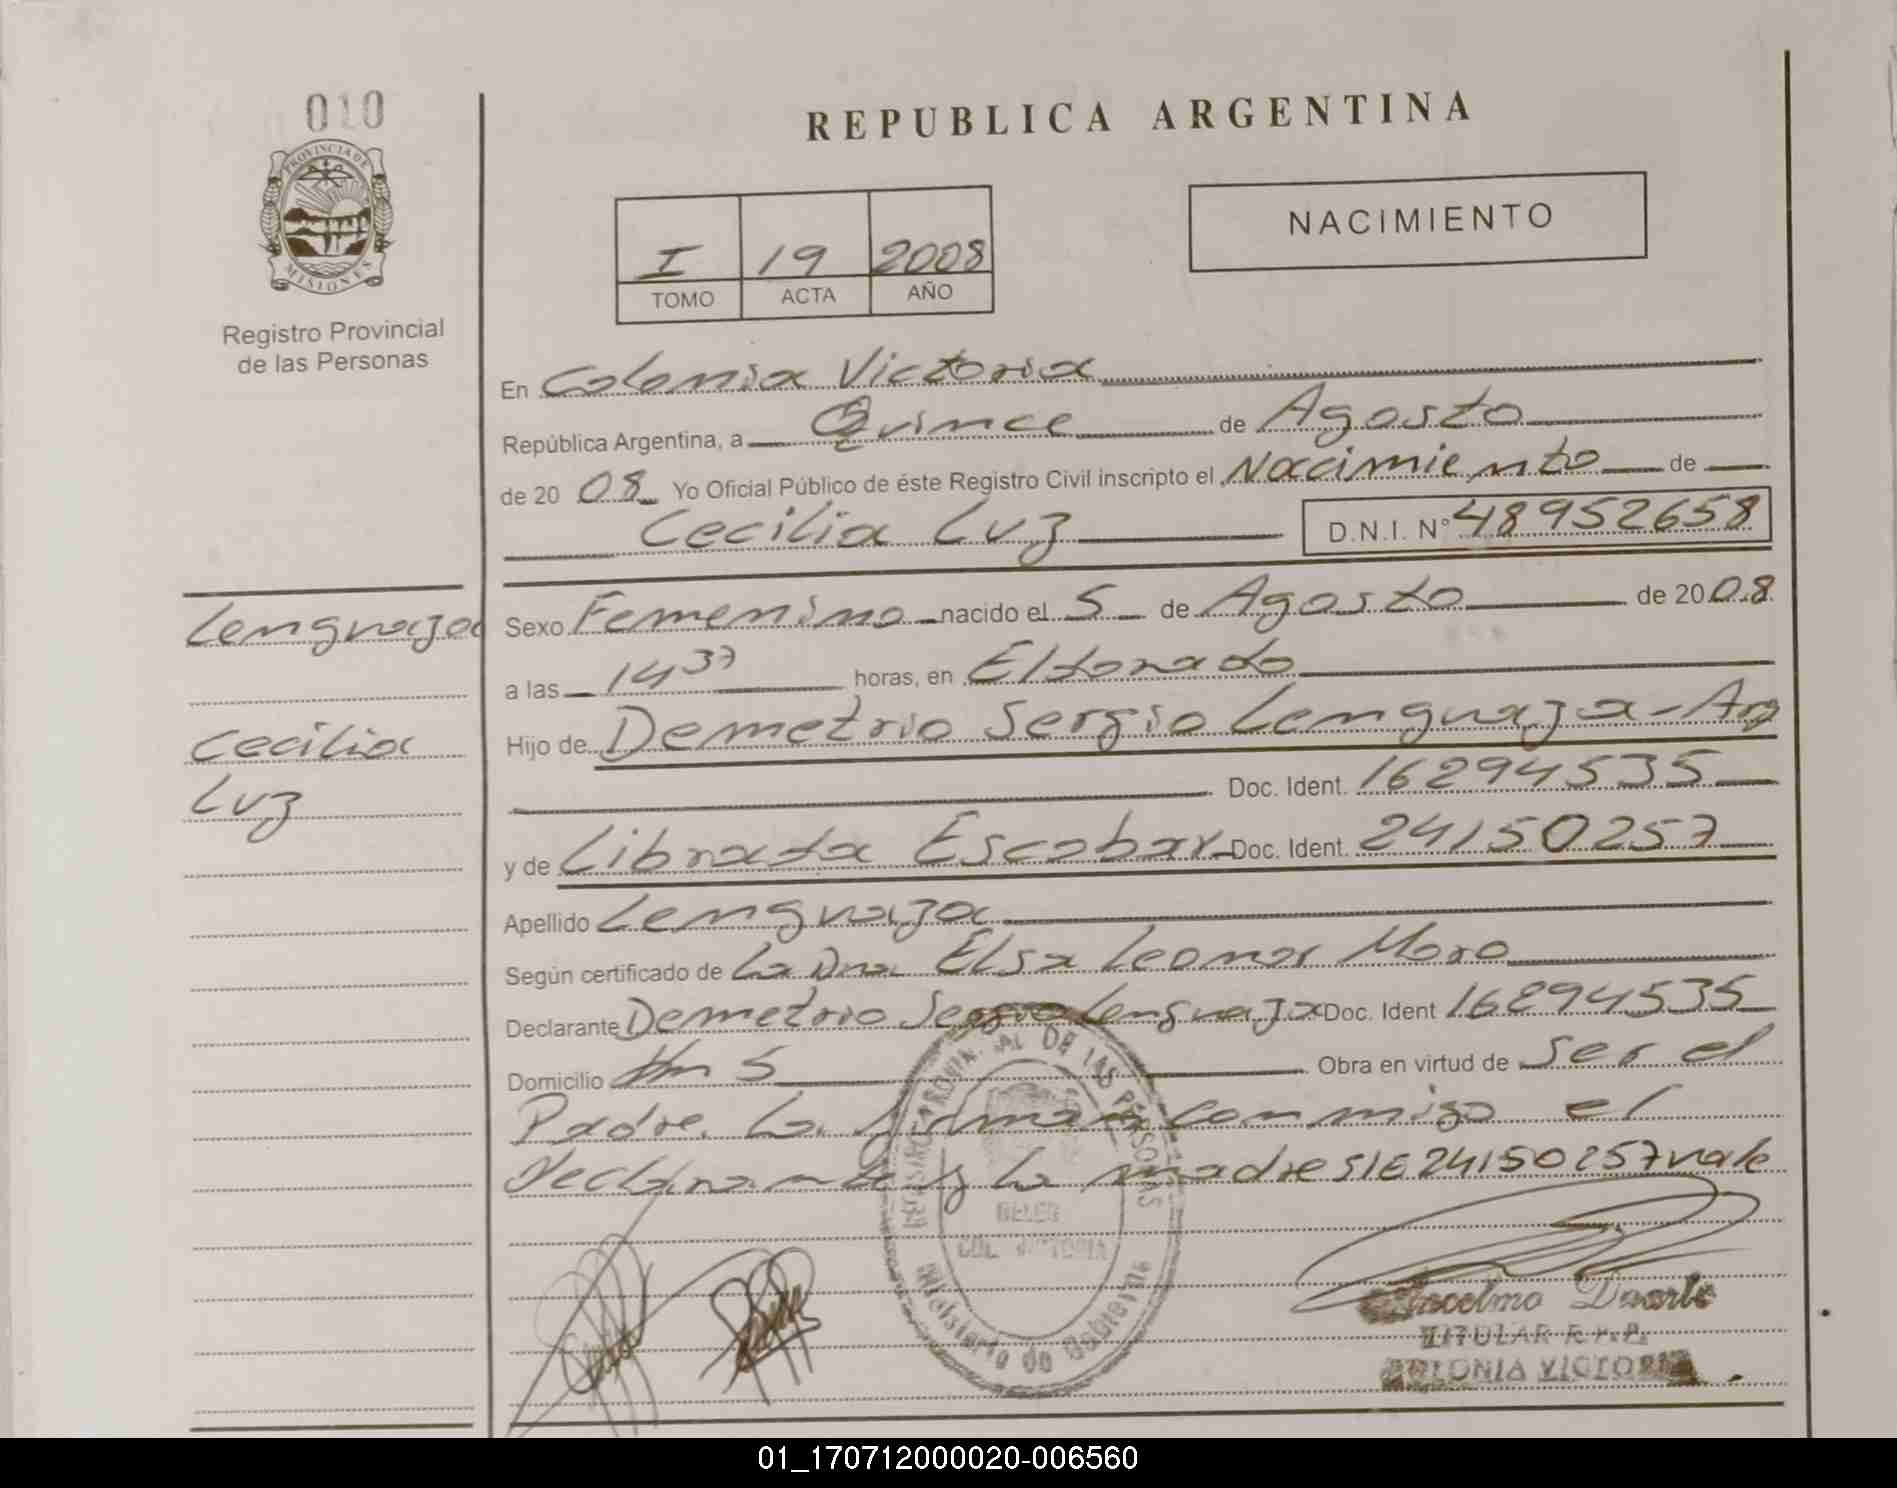 010
PROVINCIA DE
MISIONES
Registro Provincial
de las Personas
REPUBLICA ARGENTINA
I 19 2008
TOMO ACTA AÑO
NACIMIENTO
En Colonia Victoria
República Argentina, a Quince de Agosto
de 20 08 Yo Oficial Público de éste Registro Civil inscripto el Nacimiento de
Cecilia Luz D.N.I. N° 48952658
Lenguaza
Cecilia
Luz
Sexo Femenino nacido el 5 de Agosto de 20 08
a las 14 37 horas, en Eldorado
Hijo de Demetrio Sergio Lenguaza - Arg
Doc. Ident. 16294535
y de Librada Escobar Doc. Ident. 24150257
Apellido Lenguaza
Según certificado de La Dra. Elsa Leonor Moro
Declarante Demetrio Sergio Lenguaza Doc. Ident 16294535
Domicilio Km 5 Obra en virtud de ser el
Padre. La firman conmigo el
declarante y la madre S/E 24150257 vale
REGISTRO PROVINCIAL DE LAS PERSONAS
DELEG
COL VICTORIA
Ministerio de Gobierno
Anselmo Duarte
TITULAR R.P.P.
COLONIA VICTORIA
01_170712000020-006560